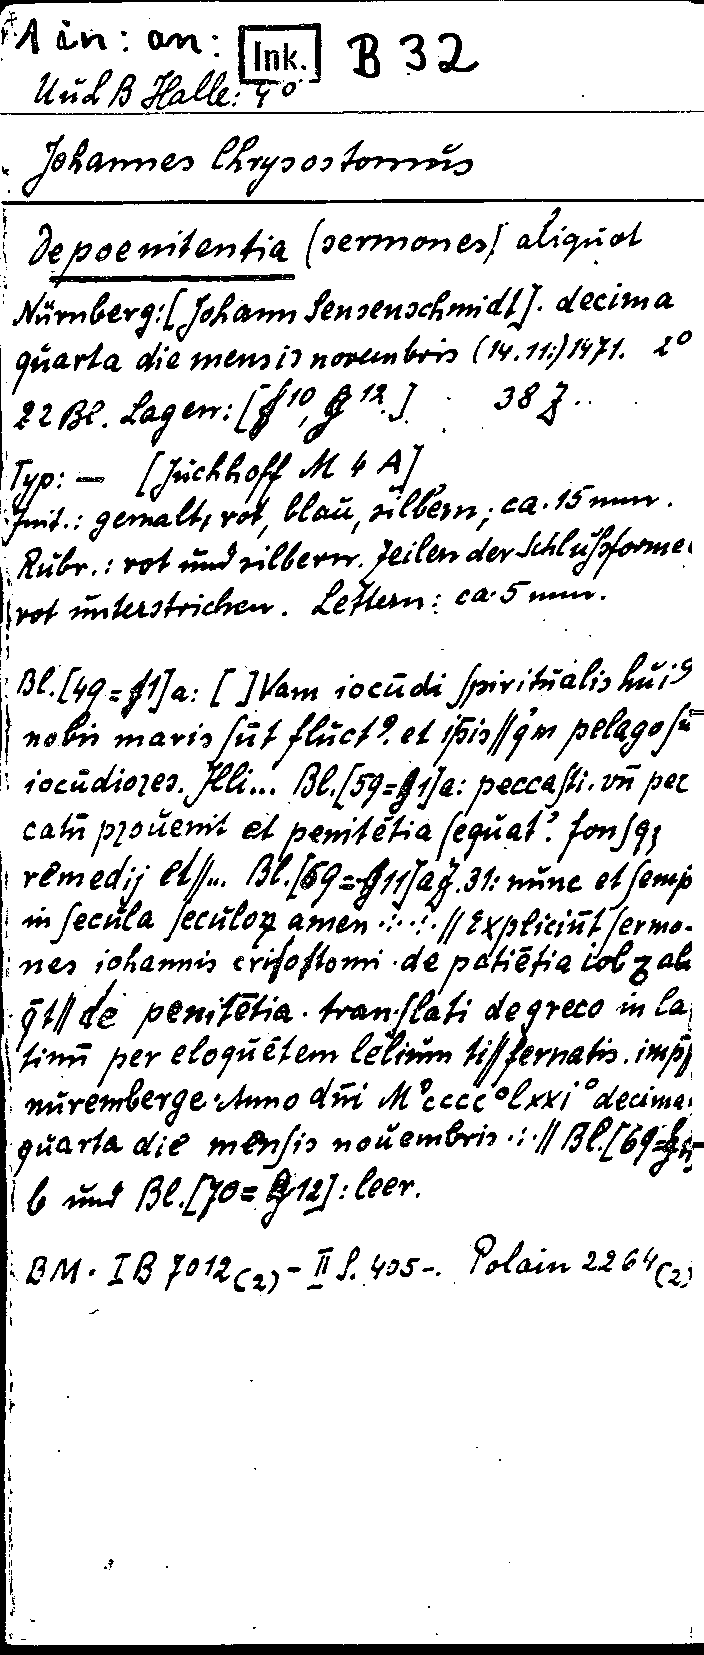 1 an: an: Ink. B 32
UuLB Halle: 4°
Johannes Chrysostomus
De poenitentia (sermones) aliquot
Nürnberg: [Johann Sensenschmidt]. decima
quarta die mensis novembris (14.11.) 1471. 2°
22 Bl. Lagen: [f10, g12.] 38 Z..
Typ: — [Juchhoff M 4 A]
Init.: gemalt, rot, blau, silbern, ca. 15 mm.
Rubr.: rot und silbern. Zeilen der Schlußforme
rot unterstrichen. Lettern: ca. 5 mm.
Bl. [49 = f1]a: [ ]Vam iocūdi spiritualis hui9
nobis maris sūt fluct9. et ip̄is//q'm pelago sū
iocūdiores. Illi... Bl. [59 = g1]a: peccasti. vn̄ pec
catū prouenit et penitētia sequat?. fonsq;
remedij et//... Bl. [69 = g11]a Z. 31: nunc et semp
in secula seculoꝝ amen .:.:. // Expliciūt sermo-
nes iohannis crisostomi de patiētia iob ⁊ ali
q̄t// de penitētia. translati de greco in la
tinū per eloquētem lelium ti//fernatis. imp̄
nuremberge. Anno dn̄i M°cccc°lxxi° decima
quarta die mensis nouembris .:. // Bl. [69 = g11]
b und Bl. [70 = g12]: leer.
BM. IB 7012(2) - II S. 405-. Polain 2264(2)